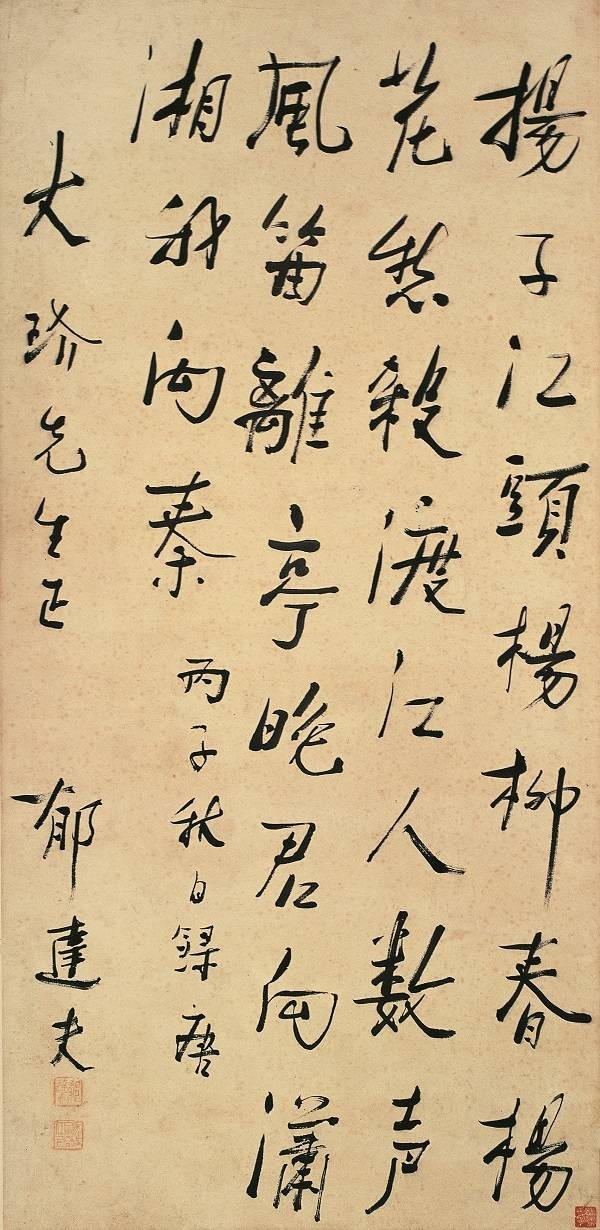 揚子江頭楊柳春楊
花愁殺渡江人数声
風笛離亭晚君向瀟
湘我向秦
丙子秋日録唐
玠先生正
郁達夫